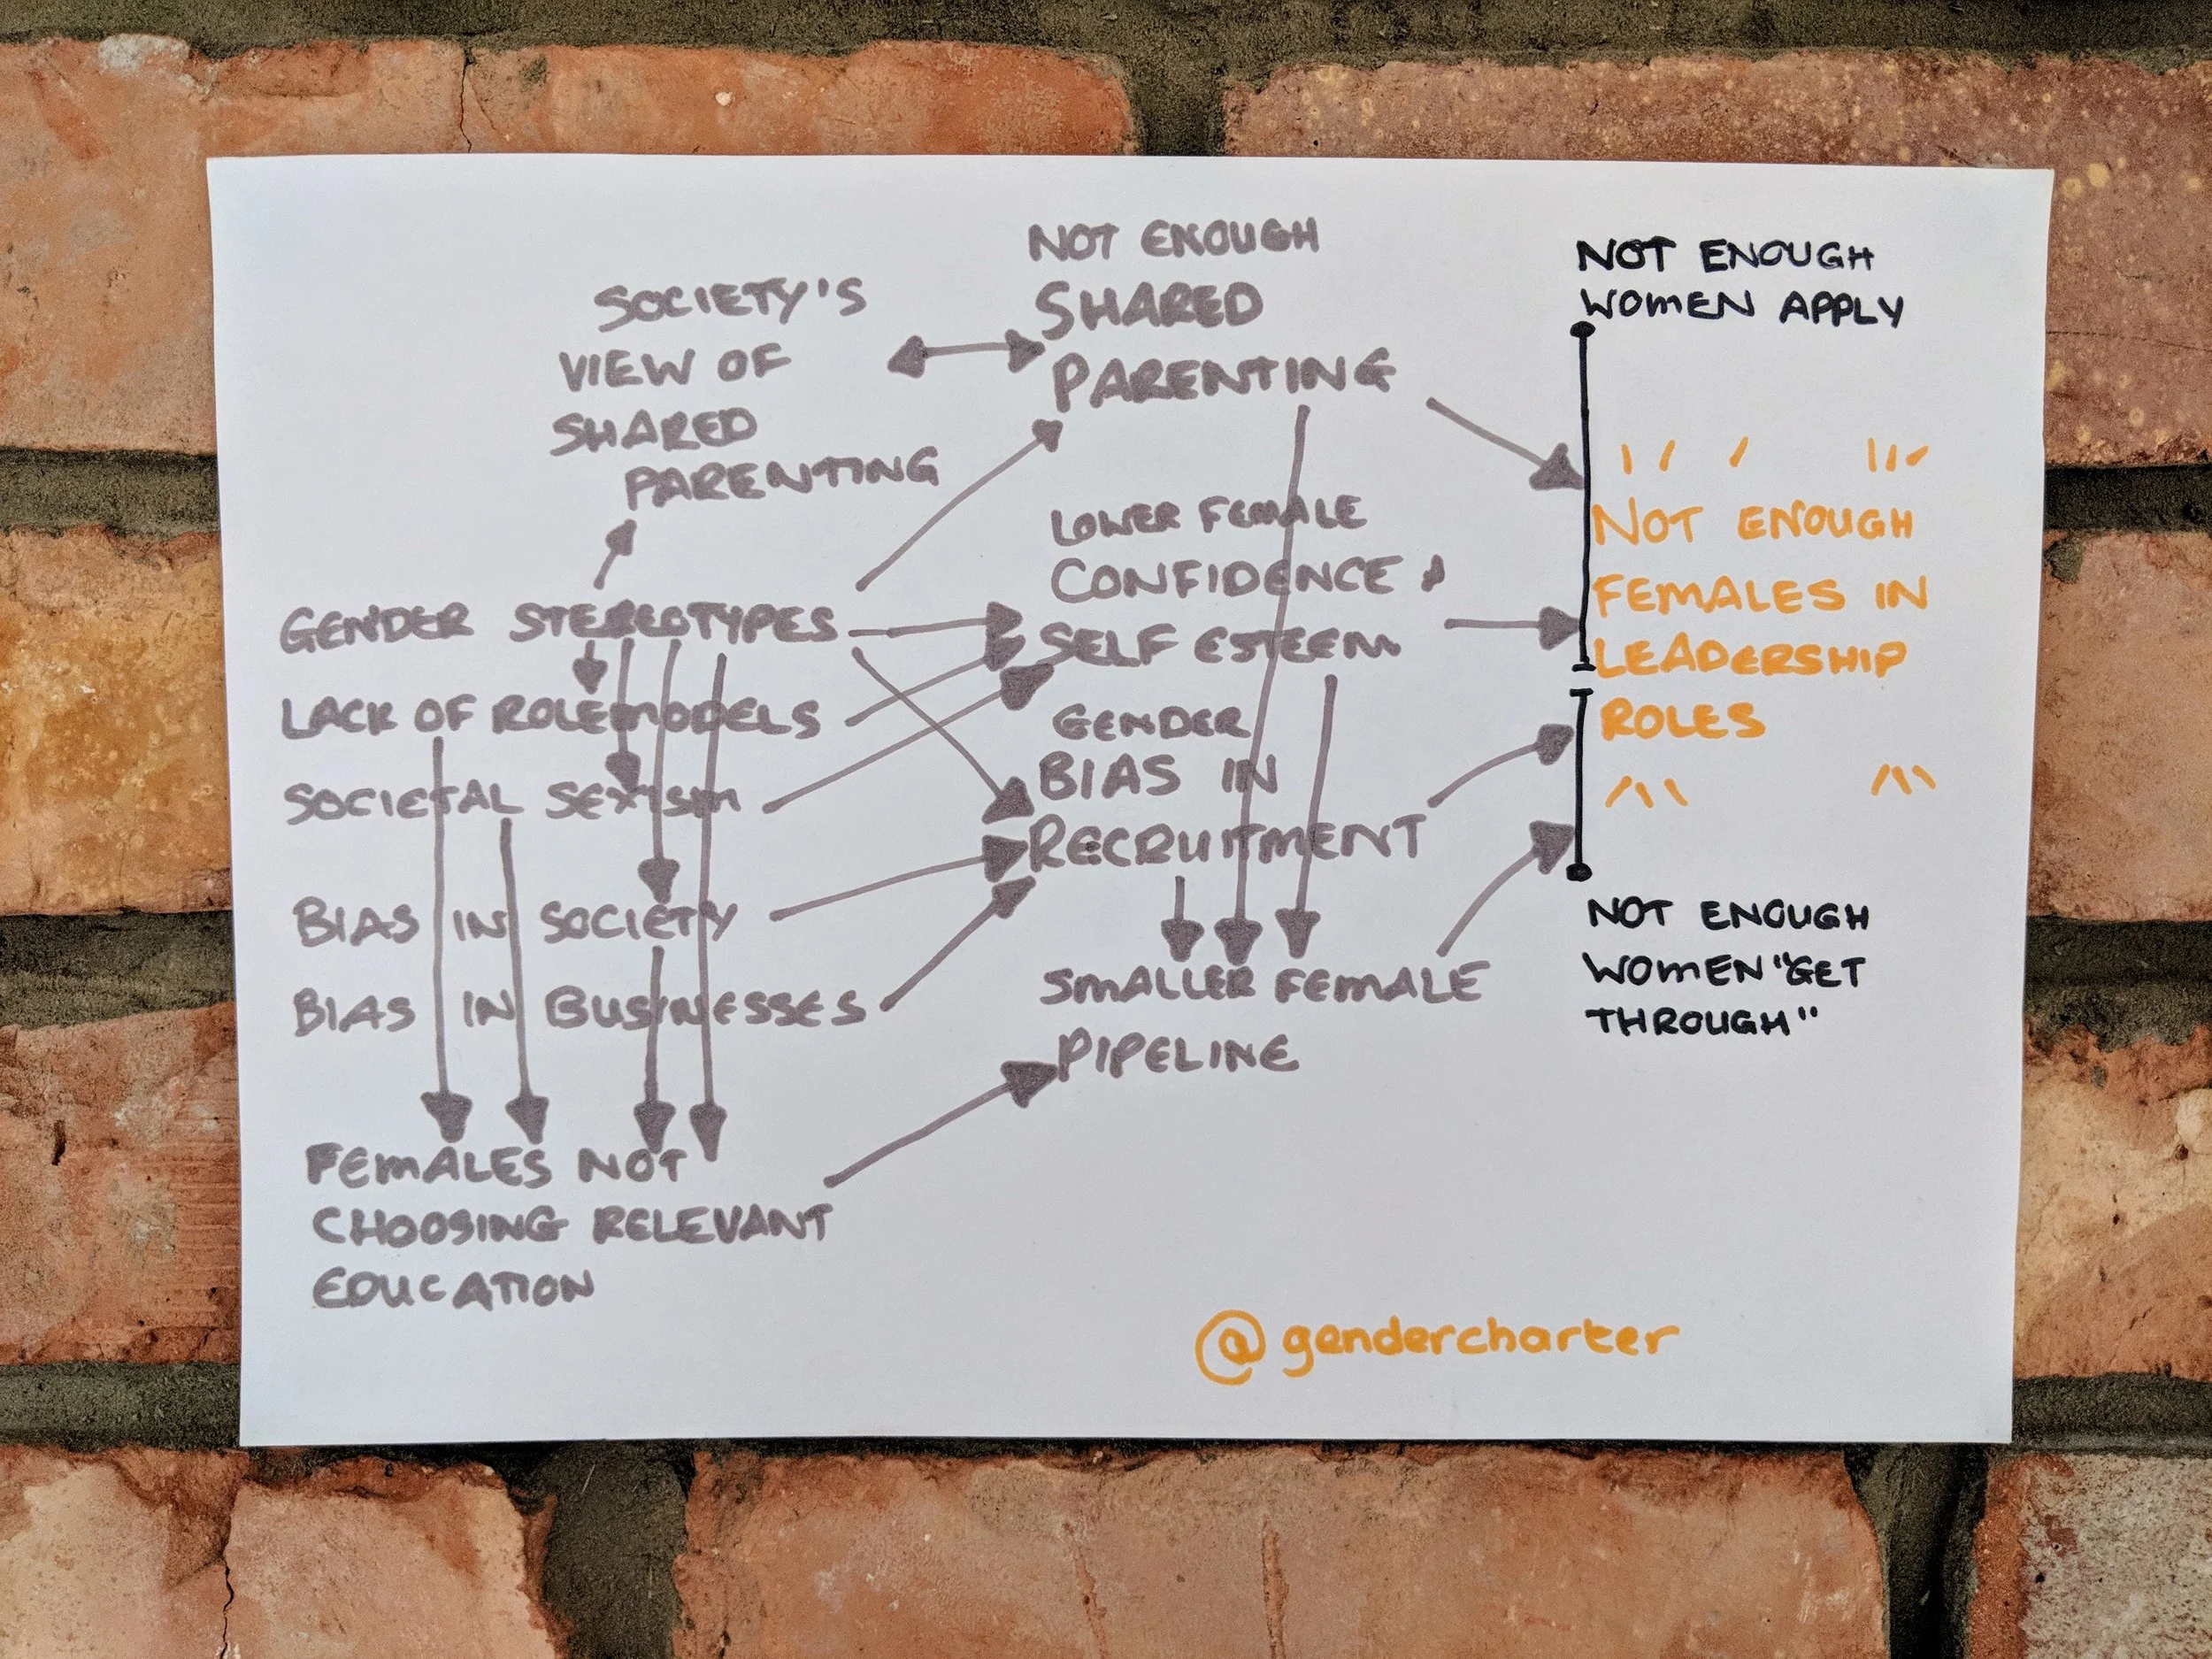 SOCIETY'S
VIEW OF
SHARED
PARENTING
NOT ENOUGH
SHARED
PARENTING
GENDER STEREOTYPES
LACK OF ROLEMODELS
SOCIETAL SEXISM
BIAS IN SOCIETY
BIAS IN BUSINESSES
FEMALES NOT
CHOOSING RELEVANT
EDUCATION
LOWER FEMALE
CONFIDENCE &
SELF ESTEEM
GENDER
BIAS IN
RECRUITMENT
SMALLER FEMALE
PIPELINE
NOT ENOUGH
WOMEN APPLY
NOT ENOUGH
FEMALES IN
LEADERSHIP
ROLES
NOT ENOUGH
WOMEN "GET
THROUGH"
@gendercharter